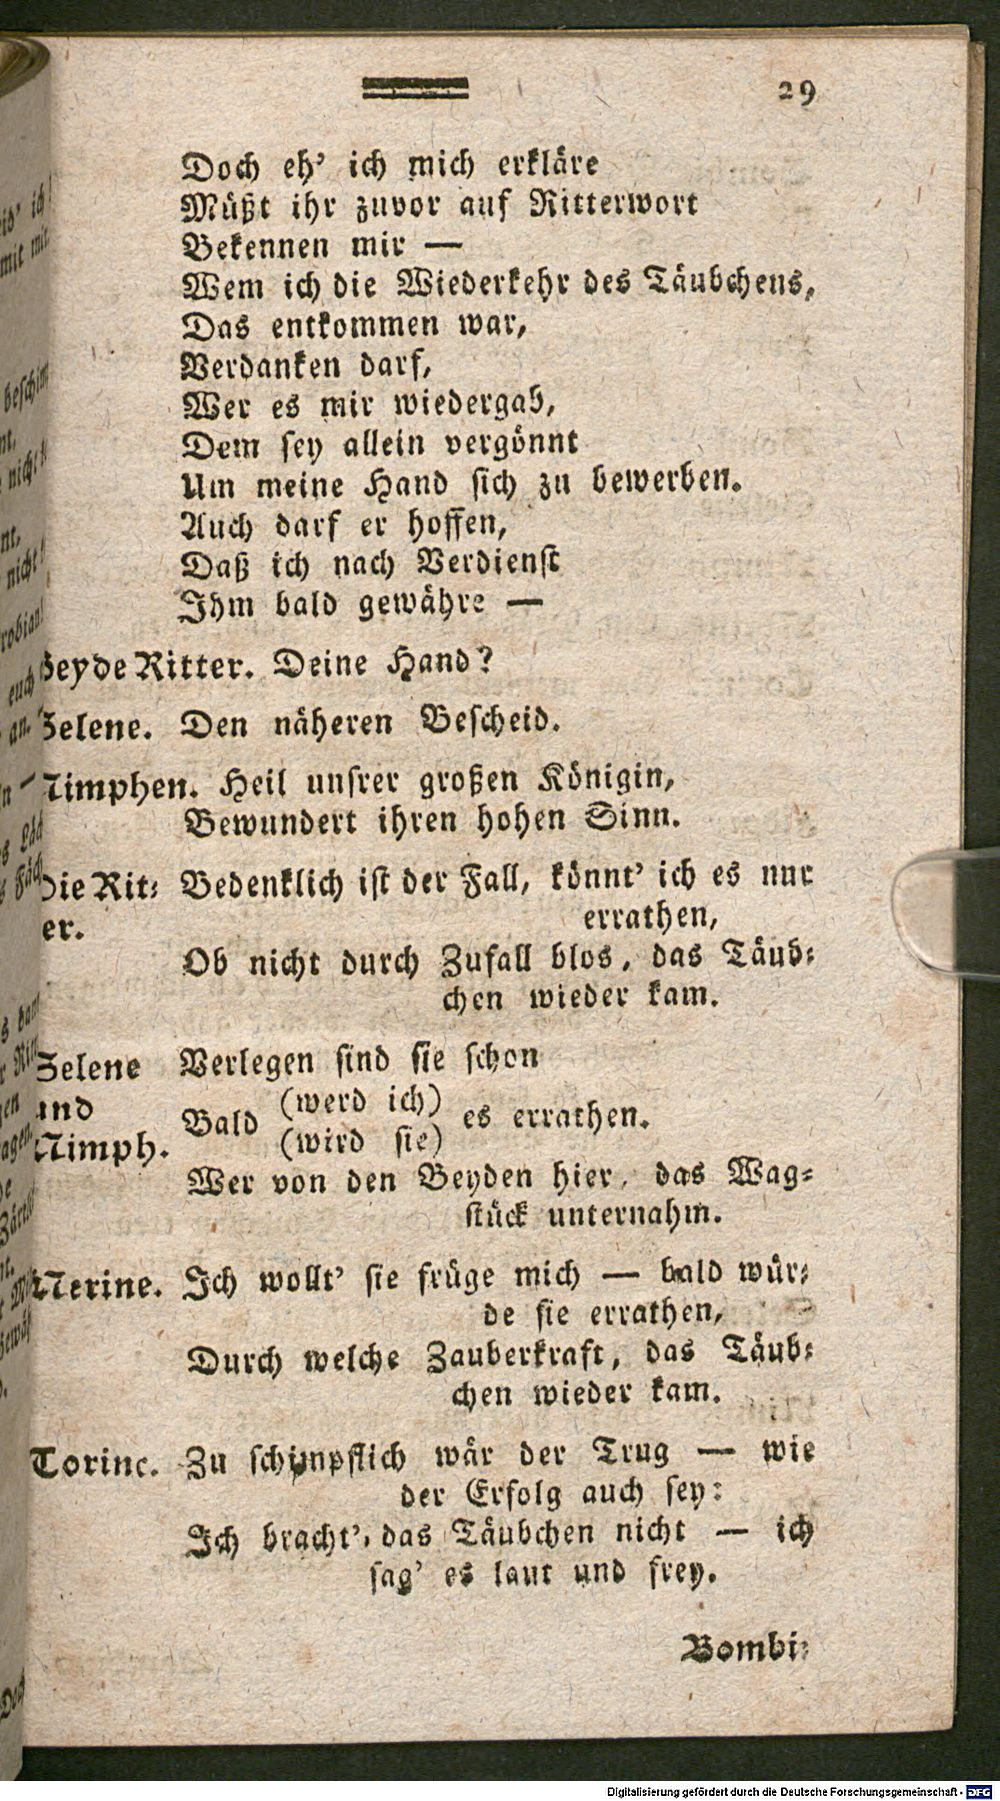 29
Doch eh' ich mich erkläre
Müßt ihr zuvor auf Ritterwort
Bekennen mir —
Wem ich die Wiederkehr des Täubchens,
Das entkommen war,
Verdanken darf,
Wer es mir wiedergab,
Dem sey allein vergönnt
Um meine Hand sich zu bewerben.
Auch darf er hoffen,
Daß ich nach Verdienst
Ihm bald gewähre —
Beyde Ritter. Deine Hand?
Zelene. Den näheren Bescheid.
Nimphen. Heil unsrer großen Königin,
Bewundert ihren hohen Sinn.
Die Rit: Bedenklich ist der Fall, könnt' ich es nur
er. errathen,
Ob nicht durch Zufall blos, das Täub:
chen wieder kam.
Zelene Verlegen sind sie schon
und Bald (werd ich) es errathen.
Nimph. (wird sie)
Wer von den Beyden hier, das Wag:
stück unternahm.
Nerine. Ich wollt' sie früge mich — bald wür:
de sie errathen,
Durch welche Zauberkraft, das Täub:
chen wieder kam.
Torine. Zu schimpflich wär der Trug — wie
der Erfolg auch sey:
Ich bracht', das Täubchen nicht — ich
sag' es laut und frey.
Bombi:
Digitalisierung gefördert durch die Deutsche Forschungsgemeinschaft - DFG